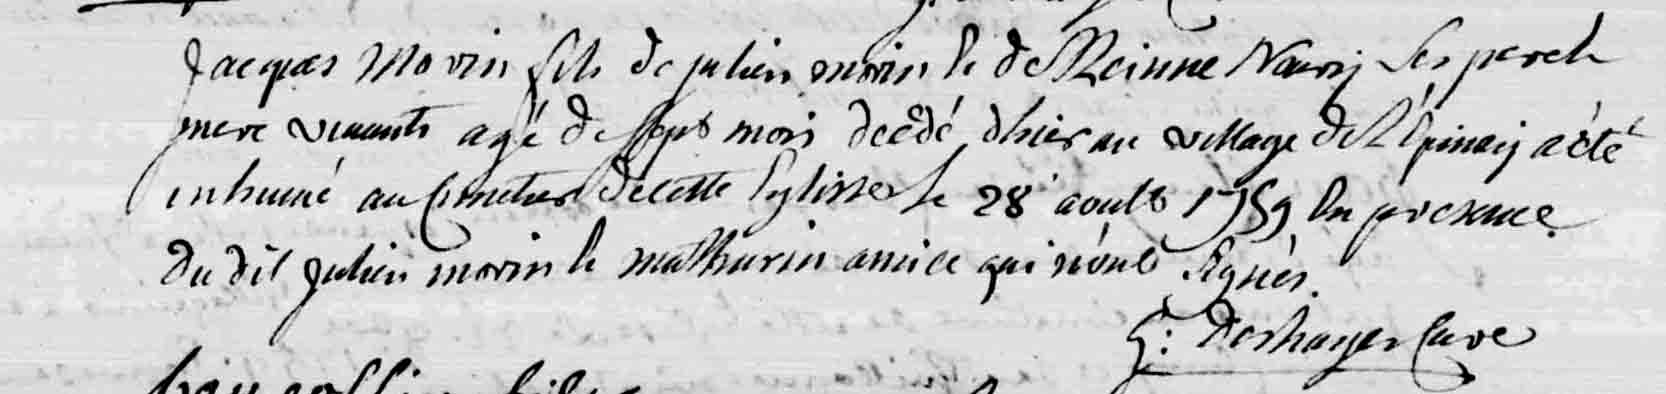 Jacques Morin fils de julien morin Et de Reinne Naury Ses pere Et
mere vivants agé de sept mois decédé d'hier au village de L'Epinay a été
inhumé au Cimetier de cette Eglisse Le 28 aoust 1759 En presence
du dit julien morin Et mathurin amice qui n'ont Signés.
G: deshayes Cure